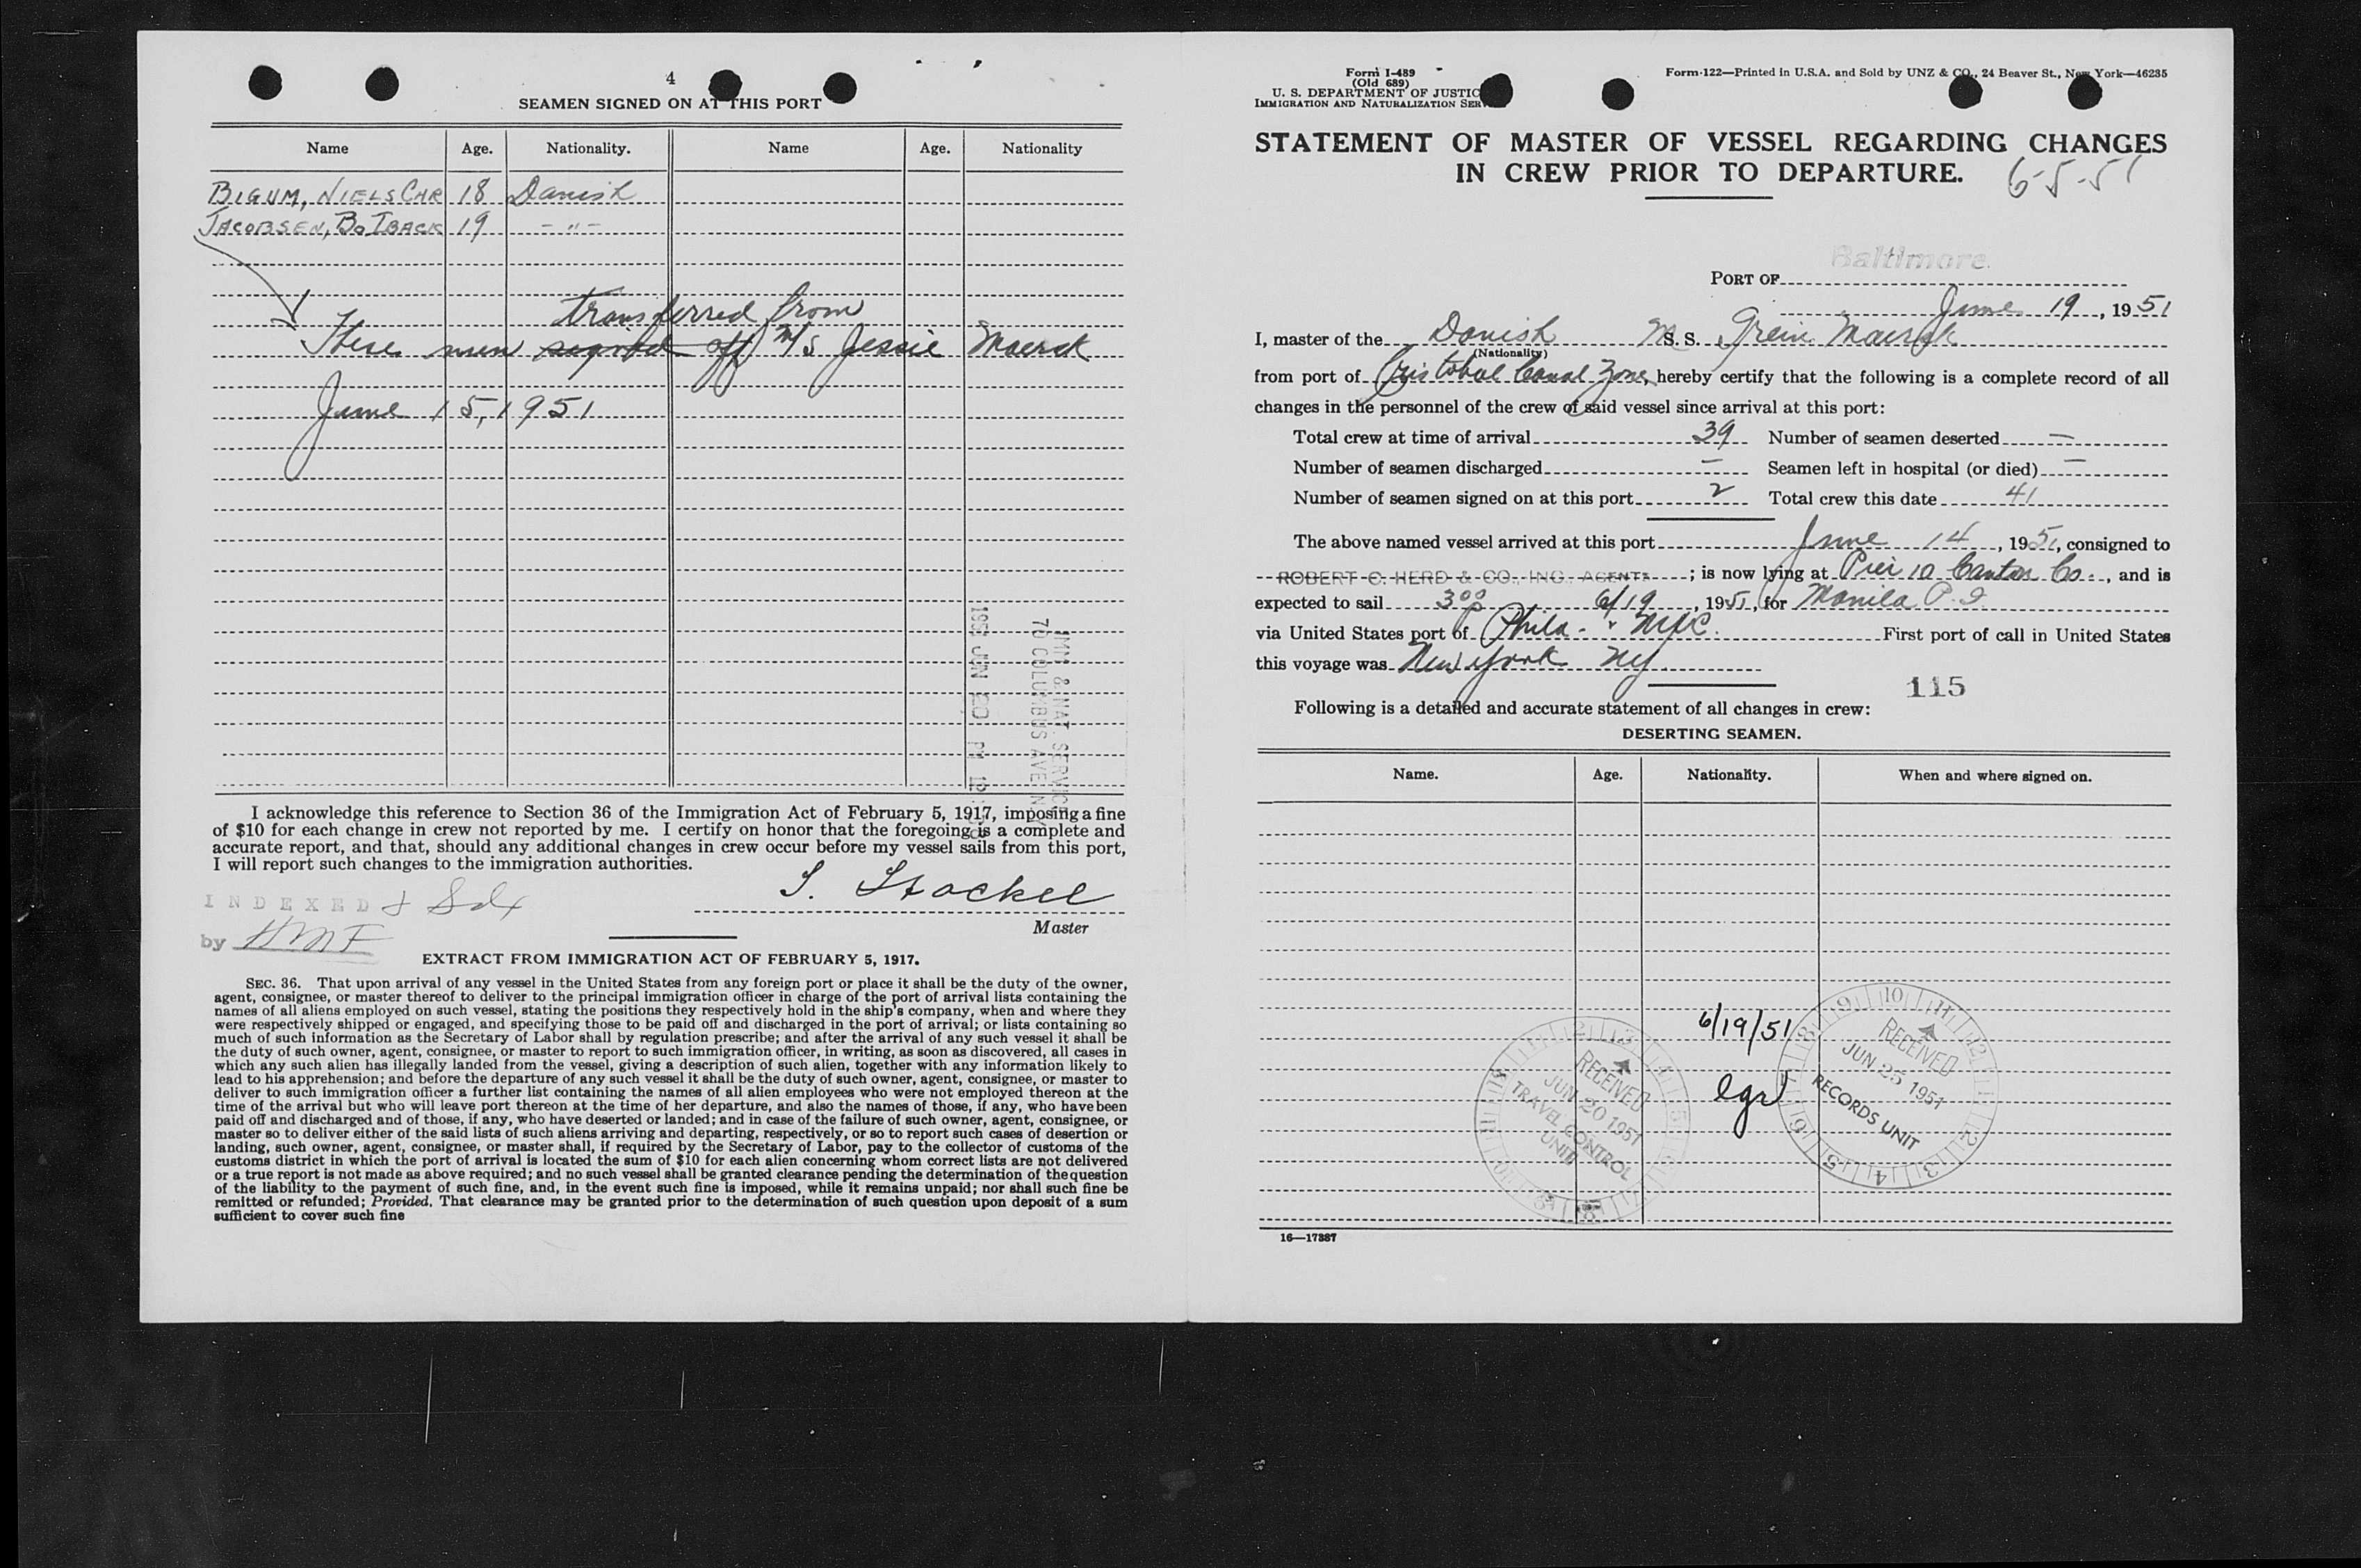 4
SEAMEN SIGNED ON AT THIS PORT
Name Age. Nationality. Name Age. Nationality
BIGUM, NIELS CHR 18 Danish
JACOBSEN, BO IBACK 19 -"-
transferred from
These men signed off M/S Jessie Maersk
June 15, 1951
IMM & NAT. SERVICE
70 COLUMBUS AVE N Y
1951 JUN 20 PM 12
I acknowledge this reference to Section 36 of the Immigration Act of February 5, 1917, imposing a fine
of $10 for each change in crew not reported by me. I certify on honor that the foregoing is a complete and
accurate report, and that, should any additional changes in crew occur before my vessel sails from this port,
I will report such changes to the immigration authorities.
S. Stockel
Master
INDEXED &
by HMF
EXTRACT FROM IMMIGRATION ACT OF FEBRUARY 5, 1917.
SEC. 36. That upon arrival of any vessel in the United States from any foreign port or place it shall be the duty of the owner,
agent, consignee, or master thereof to deliver to the principal immigration officer in charge of the port of arrival lists containing the
names of all aliens employed on such vessel, stating the positions they respectively hold in the ship's company, when and where they
were respectively shipped or engaged, and specifying those to be paid off and discharged in the port of arrival; or lists containing so
much of such information as the Secretary of Labor shall by regulation prescribe; and after the arrival of any such vessel it shall be
the duty of such owner, agent, consignee, or master to report to such immigration officer, in writing, as soon as discovered, all cases in
which any such alien has illegally landed from the vessel, giving a description of such alien, together with any information likely to
lead to his apprehension; and before the departure of any such vessel it shall be the duty of such owner, agent, consignee, or master to
deliver to such immigration officer a further list containing the names of all alien employees who were not employed thereon at the
time of the arrival but who will leave port thereon at the time of her departure, and also the names of those, if any, who have been
paid off and discharged and of those, if any, who have deserted or landed; and in case of the failure of such owner, agent, consignee, or
master so to deliver either of the said lists of such aliens arriving and departing, respectively, or so to report such cases of desertion or
landing, such owner, agent, consignee, or master shall, if required by the Secretary of Labor, pay to the collector of customs of the
customs district in which the port of arrival is located the sum of $10 for each alien concerning whom correct lists are not delivered
or a true report is not made as above required; and no such vessel shall be granted clearance pending the determination of the question
of the liability to the payment of such fine, and, in the event such fine is imposed, while it remains unpaid; nor shall such fine be
remitted or refunded; Provided, That clearance may be granted prior to the determination of such question upon deposit of a sum
sufficient to cover such fine
Form I-489
(Old 689)
U. S. DEPARTMENT OF JUSTIC
IMMIGRATION AND NATURALIZATION SER
Form-122—Printed in U.S.A. and Sold by UNZ & CO., 24 Beaver St., New York—46235
STATEMENT OF MASTER OF VESSEL REGARDING CHANGES
IN CREW PRIOR TO DEPARTURE.
6-5-51
Baltimore.
PORT OF
June 19, 1951
I, master of the Danish M. S. S. Grein Maersk
(Nationality)
from port of Cristobal Canal Zone, hereby certify that the following is a complete record of all
changes in the personnel of the crew of said vessel since arrival at this port:
Total crew at time of arrival 39 Number of seamen deserted —
Number of seamen discharged — Seamen left in hospital (or died) —
Number of seamen signed on at this port 2 Total crew this date 41
The above named vessel arrived at this port June 14, 1951, consigned to
ROBERT C. HERD & CO., INC. AGENTS ; is now lying at Pier 10 Canton Co., and is
expected to sail 3 00 P 6/19, 1951, for Manila P.I.
via United States port of Phila. - NYC. First port of call in United States
this voyage was New York NY
115
Following is a detailed and accurate statement of all changes in crew:
DESERTING SEAMEN.
Name. Age. Nationality. When and where signed on.
6/19/51
RECEIVED
JUN 20 1951
TRAVEL CONTROL
UNIT
RECEIVED
JUN 25 1951
RECORDS UNIT
16—17387